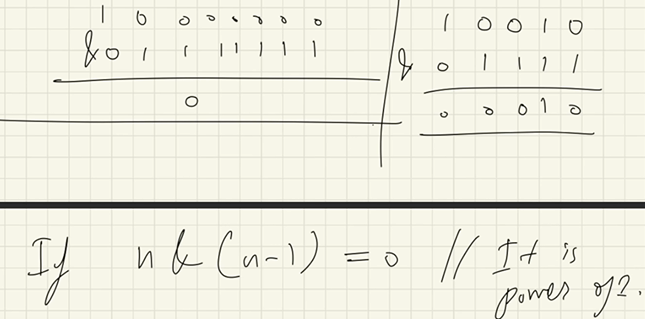 1 0 0 0 0 0 0 0
& 0 1 1 1 1 1 1 1
0
1 0 0 1 0
& 0 1 1 1 1
0 0 0 1 0
If n & (n-1) = 0 // It is
power of 2.